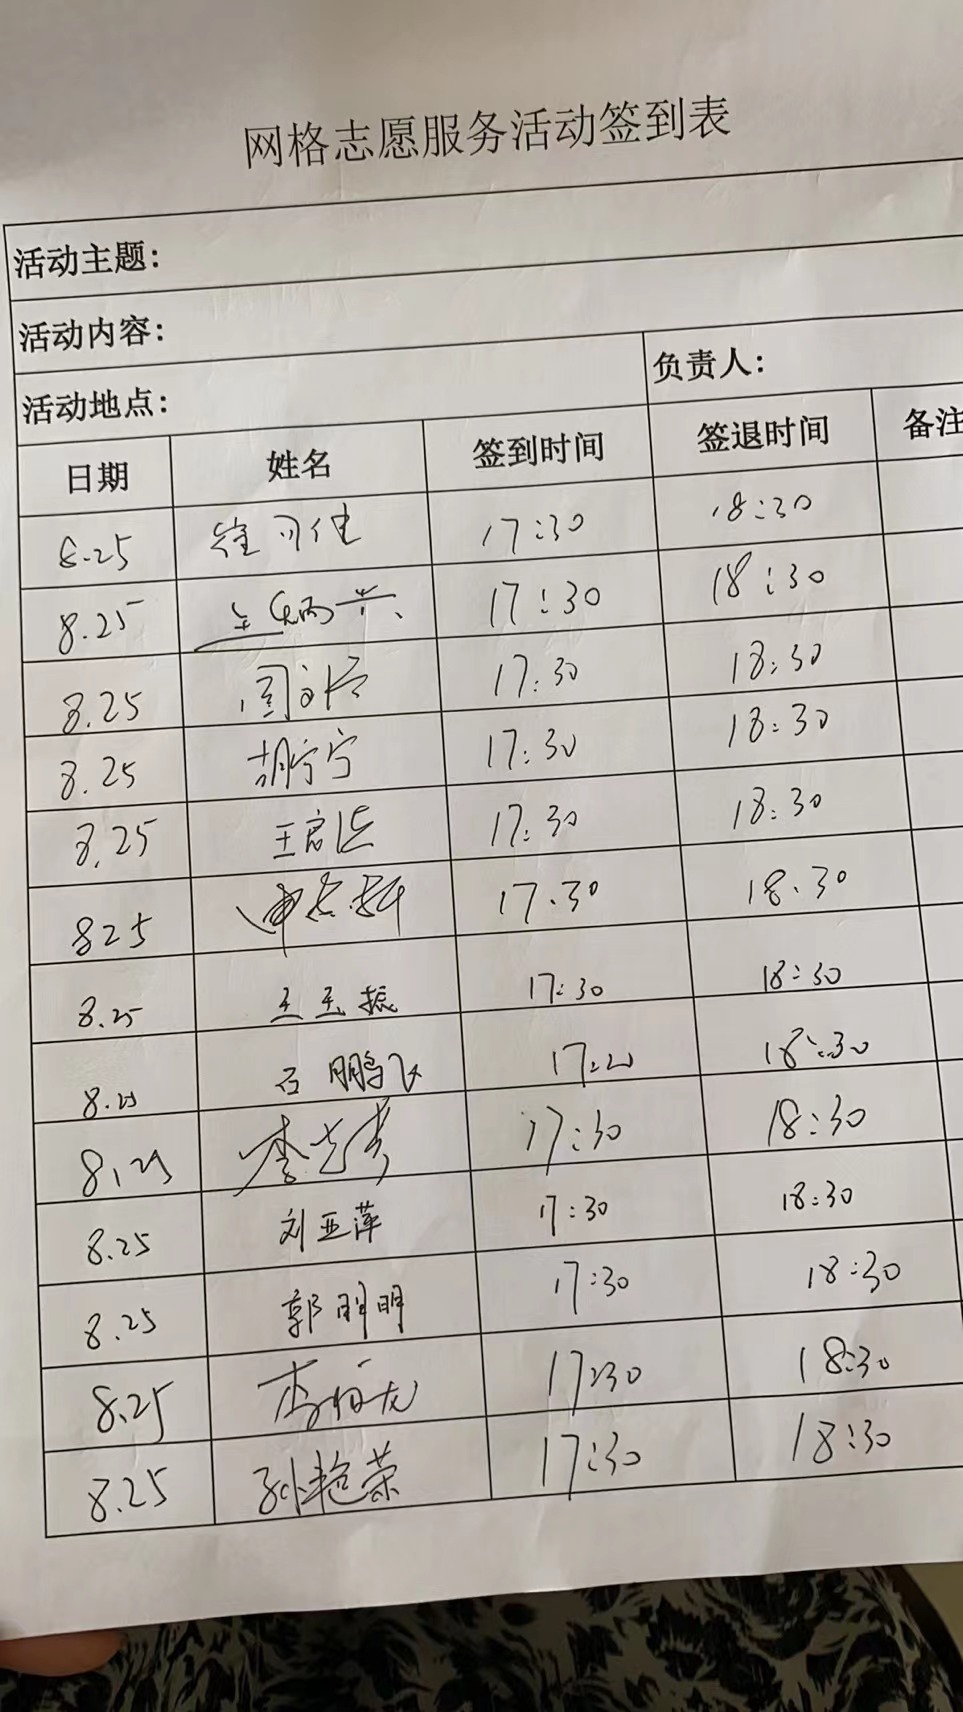 网格志愿服务活动签到表
活动主题：
活动内容：
活动地点： 负责人：
日期 姓名 签到时间 签退时间 备注
8.25 17:30 18:30
8.25 17:30 18:30
8.25 17:30 18:30
8.25 胡宁宁 17:30 18:30
8.25 17:30 18:30
825 17.30 18.30
8.25 王玉振 17:30 18:30
8.25 石鹏飞 18:30
8.25 17:30 18:30
8.25 刘亚萍 17:30 18:30
8.25 郭明明 17:30 18:30
8.25 17:30 18:30
8.25 孙艳荣 17:30 18:30